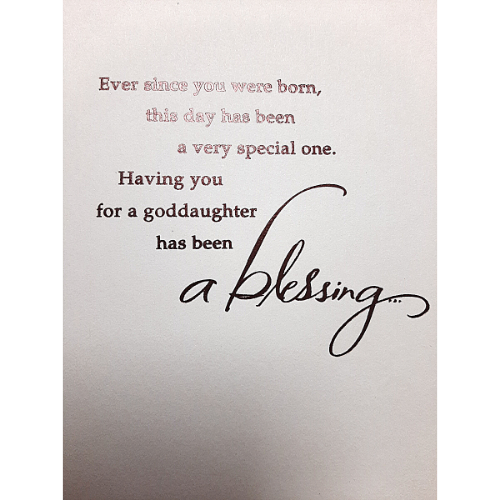 Ever since you were born,
this day has been
a very special one.
Having you
for a goddaughter
has been
a blessing...